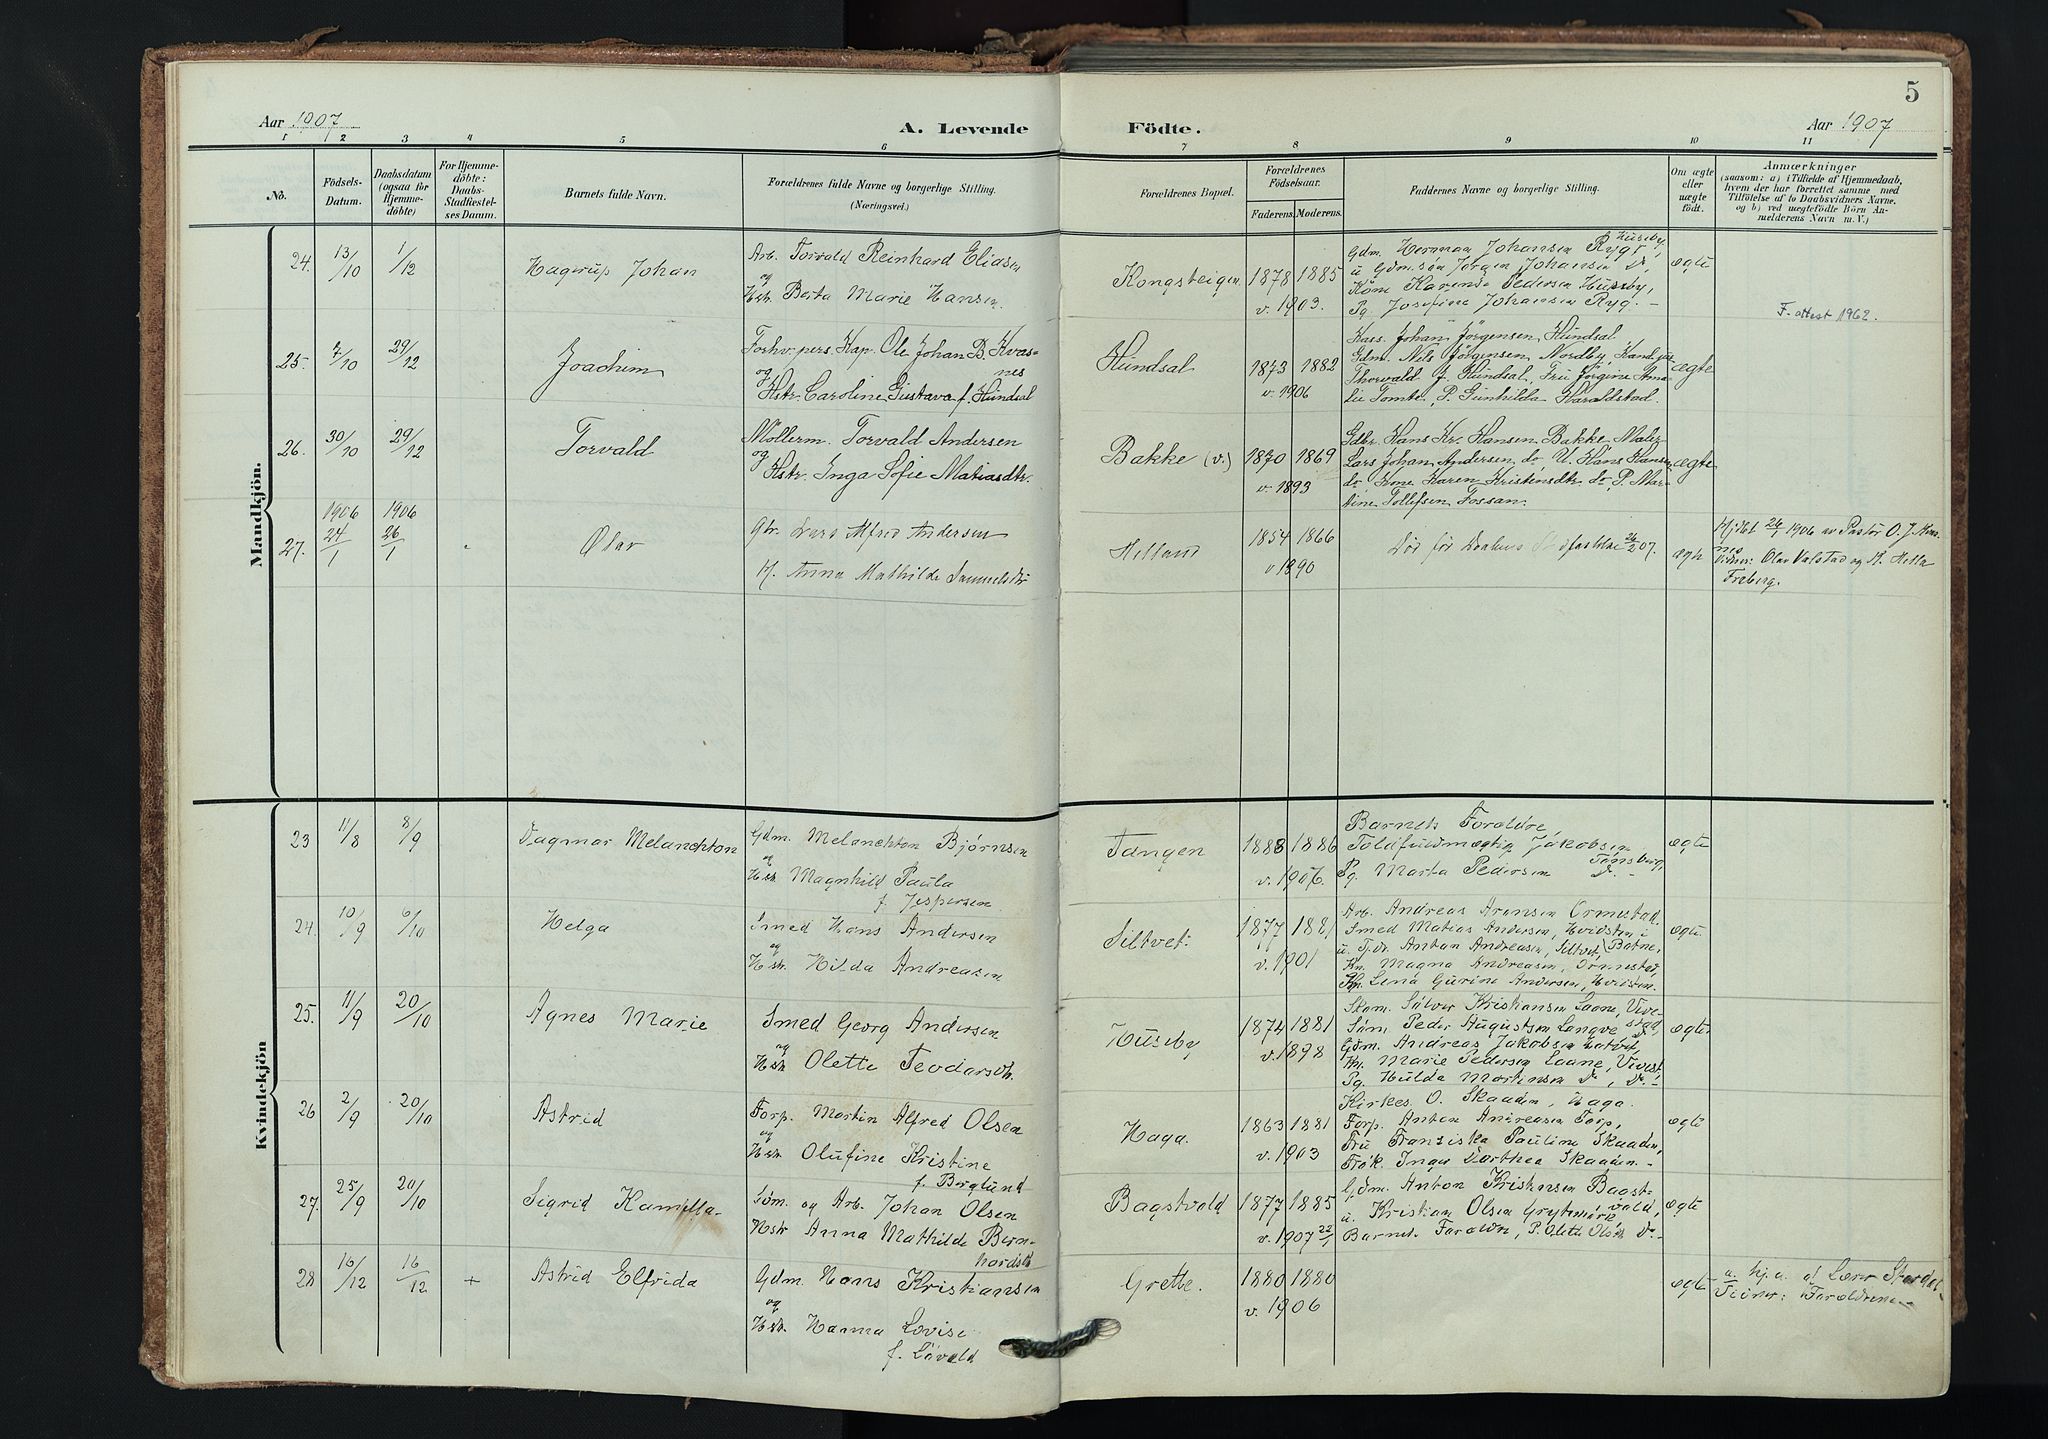 5
Aar 1907
A. Levende
Födte.
Aar 1907
1 2 3 4 5 6 7 8 9 10 11
No.
Födsels-
Datum.
Daabsdatum
(ogsaa för
Hjemme-
döbte)
For Hjemme-
döbte:
Daabs-
Stadfæstel-
ses Datum.
Barnets fulde Navn.
Forældrenes fulde Navne og borgerlige Stilling.
(Næringsvei.)
Forældrenes Bopæl.
Forældrenes
Födselsaar.
Faderens. Moderens.
Faddernes Navne og borgerlige Stilling.
Om ægte
eller
uægte
født.
Anmærkninger
(saasom: a) i Tilfælde af Hjemmedaab,
hvem der har forrettet samme med
Tilföielse af to Daabsvidners Navne.
og b) ved uægtefödte Börn An-
melderens Navn m. V.)
Mandkjön.
24. 13/10 1/12 Hagerup Johan
Arb. Torvald Reinhard Eliasen
og
Hstr. Berta Marie Hansen
Kongsteigen 1878 1885
v. 1903.
Gdm. Herman Johansen Ryg, Huseby,
u Gdm.søn Jørgen Johansen Do,
Kone Karende Pedersen Huseby,
Pg. Josefine Johansen Ryg. -
ægte
F. attest 1962.
25. 7/10 29/12 Joachim
Forhv. pers. Kap. Ole Johan B. Kvas-
nes
og
Hstr. Caroline Gustava f. Hundsal
Hundsal 1873 1882
v. 1906
Kass. Johan Jörgensen Hundsal
Gdm. Nils Jörgensen Nordby, Kand. jur
Thorvald f. Hundsal, Fru Jörgine Ama-
lie Tomte, P. Gunhilda Haraldstad.
ægte
26. 30/10 29/12 Torvald
Möllerm. Torvald Andersen
og
Hstr. Inga Sofie Matiasdtr.
Bakke (v.) 1870 1869
v. 1893
Gdbr. Hans Kr. Hansen Bakke Maler
Lars Johan Andersen do, U. Hans Hansen
do Kone Karen Kristensdtr. do, P. Mar-
tine Tollefsen Fossan.
ægte
1906 1906
27. 24/1 26/1 Olav
Gbr. Lars Alfred Andersen
H. Anna Mathilde Samuelsdtr
Helland 1854 1866
v 1890
Död för Daabens Stadfæstelse 26/2 07.
ægte
Hjdbt 26/1 1906 av Pastor O. J.
Vidner: Olav Valstad og H.
Freberg.
Kvindekjön
23 11/8 8/9 Dagmar Melanchton
Gdm. Melanchton Bjørnsen
og
Hstr. Magnhild Paula
f. Jespersen
Tangen 1888 1886
v. 1907.
Barnets Forældre
Toldfuldmægtig Jakobsen
Tønsberg,
Pg. Marta Pedersen Do. -
ægte
24 10/9 6/10 Helga
Smed Hans Andersen
og
Hstr. Hilda Andreasen
Siltvet. 1877 1881
v. 1901
Arb. Andreas Aronsen Ormestad
Smed Matias Andersen, Hvidsten i
u. Tj.dr. Anton Andreasen, Siltvet, Botne,
Kn. Magna Andreasen, Ormestad,
Lena Gurine Andersen, Hvidsten.
ægte
25. 11/9 20/10 Agnes Marie
Smed Georg Andersen
og
Hstr. Olette Teodorsdtr.
Huseby 1874 1881
v. 1898
Skom. Sølver Kristiansen Laane, Vive-
stad
Søm. Peder Augustsen Langve Do,
Gdm. Andreas Jakobsen
Kn. Marie Pedersen Laane, Vivest.,
Pg. Hulda Mortensen Do, Do. -
ægte
26 2/9 20/10 Astrid
Forp. Martin Alfred Olsen
og
Hstr. Olufine Kristine
f. Berglund
Haga. 1863 1881
v. 1903
Kirkes. O. Skaaden, Haga.
Forp. Anton Andreasen Torp,
Fru Franziska Pauline Skaaden,
Frøk. Inga Dorthea Skaaden. -
ægte
27. 25/9 20/10 Sigrid Kamilla
Søm. og Arb. Johan Olsen
Hstr Anna Mathilde Bern-
hardsd
Bagstvold 1877 1885
v. 1907 22/1
Gdm. Anton Kristiansen Bagst-
vold,
u. Kristian Olsen Grytemark
Barnets Forældre, P. Olette Olsen Do -
ægte
28 16/12 16/12 + Astrid Elfrida
Gdm. Hans Kristiansen
og
Hstr. Hanna Lovise
f. Lövald
Grette. 1880 1880
v. 1906
ægte
a. hj.d. af Lærer
Vidner: Forældrene -